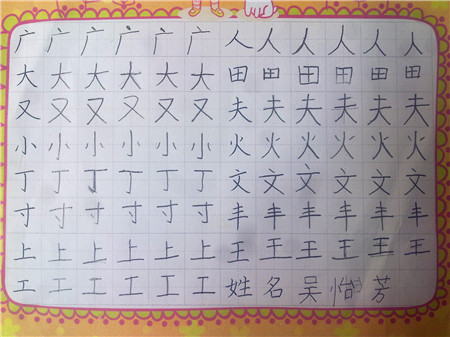 广广广广广广人人人人人人
大大大大大大田田田田田田
又又又又又又夫夫夫夫夫夫
小小小小小小火火火火火火
丁丁丁丁丁丁文文文文文文
寸寸寸寸寸寸丰丰丰丰丰丰
上上上上上上王王王王王王
工工工工工工姓名吴怡芳